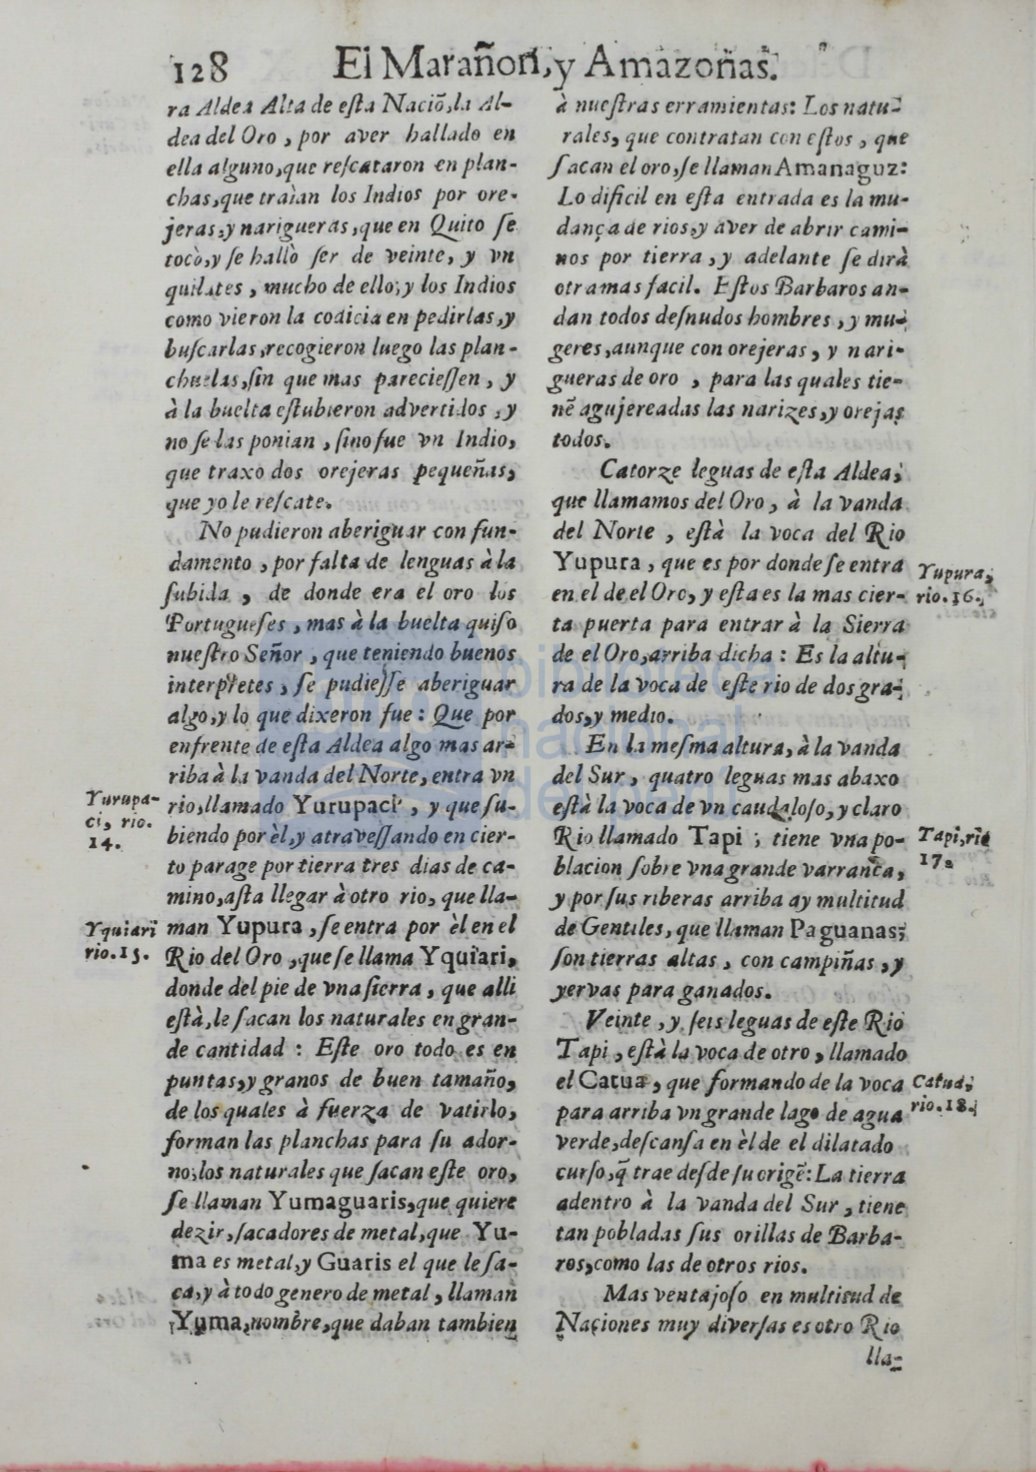 128 El Marañon, y Amazonas.
ra Aldea Alta de esta Naciõ, la Al-
dea del Oro, por aver hallado en
ella alguno, que rescataron en plan-
chas, que traìan los Indios por ore-
jeras, y narigueras, que en Quito se
tocò, y se hallò ser de veinte, y vn
quilates, mucho de ello, y los Indios
como vieron la codicia en pedirlas, y
buscarlas, recogieron luego las plan-
chuelas, sin que mas pareciessen, y
à la buelta estubieron advertidos, y
no se las ponian, sino fue vn Indio,
que traxo dos orejeras pequeñas,
que yo le rescate.
No pudieron aberiguar con fun-
damento, por falta de lenguas à la
subida, de donde era el oro los
Portugueses, mas à la buelta quiso
nuestro Señor, que teniendo buenos
interpretes, se pudiesse aberiguar
algo, y lo que dixeron fue: Que por
enfrente de esta Aldea algo mas ar-
riba à la vanda del Norte, entra vn
rio, llamado Yurupaci, y que su-
biendo por èl, y atravessando en cier-
to parage por tierra tres dias de ca-
mino, asta llegar à otro rio, que lla-
man Yupura, se entra por èl en el
Rio del Oro, que se llama Yquiari,
donde del pie de vna sierra, que alli
està, le sacan los naturales en gran-
de cantidad: Este oro todo es en
puntas, y granos de buen tamaño,
de los quales à fuerza de vatirlo,
forman las planchas para su ador-
no; los naturales que sacan este oro,
se llaman Yumaguaris, que quiere
dezir, sacadores de metal, que Yu-
ma es metal, y Guaris el que le sa-
ca, y à todo genero de metal, llaman
Yuma, nombre, que daban tambien
Yurupa-
ci, rio.
14.
Yquiari
rio. 15.
à nuestras erramientas: Los natu-
rales, que contratan con estos, que
sacan el oro, se llaman Amanaguz:
Lo dificil en esta entrada es la mu-
dança de rios, y aver de abrir cami-
nos por tierra, y adelante se dirà
otra mas facil. Estos Barbaros an-
dan todos desnudos hombres, y mu-
geres, aunque con orejeras, y nari-
gueras de oro, para las quales tie-
nẽ agujereadas las narizes, y orejas
todos.
Catorze leguas de esta Aldea,
que llamamos del Oro, à la vanda
del Norte, està la voca del Rio
Yupura, que es por donde se entra
en el de el Oro, y esta es la mas cier-
ta puerta para entrar à la Sierra
de el Oro, arriba dicha: Es la altu-
ra de la voca de este rio de dos gra-
dos, y medio.
En la mesma altura, à la vanda
del Sur, quatro leguas mas abaxo
està la voca de vn caudaloso, y claro
Rio llamado Tapi; tiene vna po-
blacion sobre vna grande varranca,
y por sus riberas arriba ay multitud
de Gentiles, que llaman Paguanas;
son tierras altas, con campiñas, y
yervas para ganados.
Veinte, y seis leguas de este Rio
Tapi, està la voca de otro, llamado
el Catua, que formando de la voca
para arriba vn grande lago de agua
verde, descansa en èl de el dilatado
curso, q̃ trae desde su origẽ: La tierra
adentro à la vanda del Sur, tiene
tan pobladas sus orillas de Barba-
ros, como las de otros rios.
Mas ventajoso en multitud de
Naciones muy diversas es otro Rio
lla-
Yupura,
rio. 16.
Tapi, rio
17.
Catua,
rio. 18.
biblioteca
nacional
del Perú